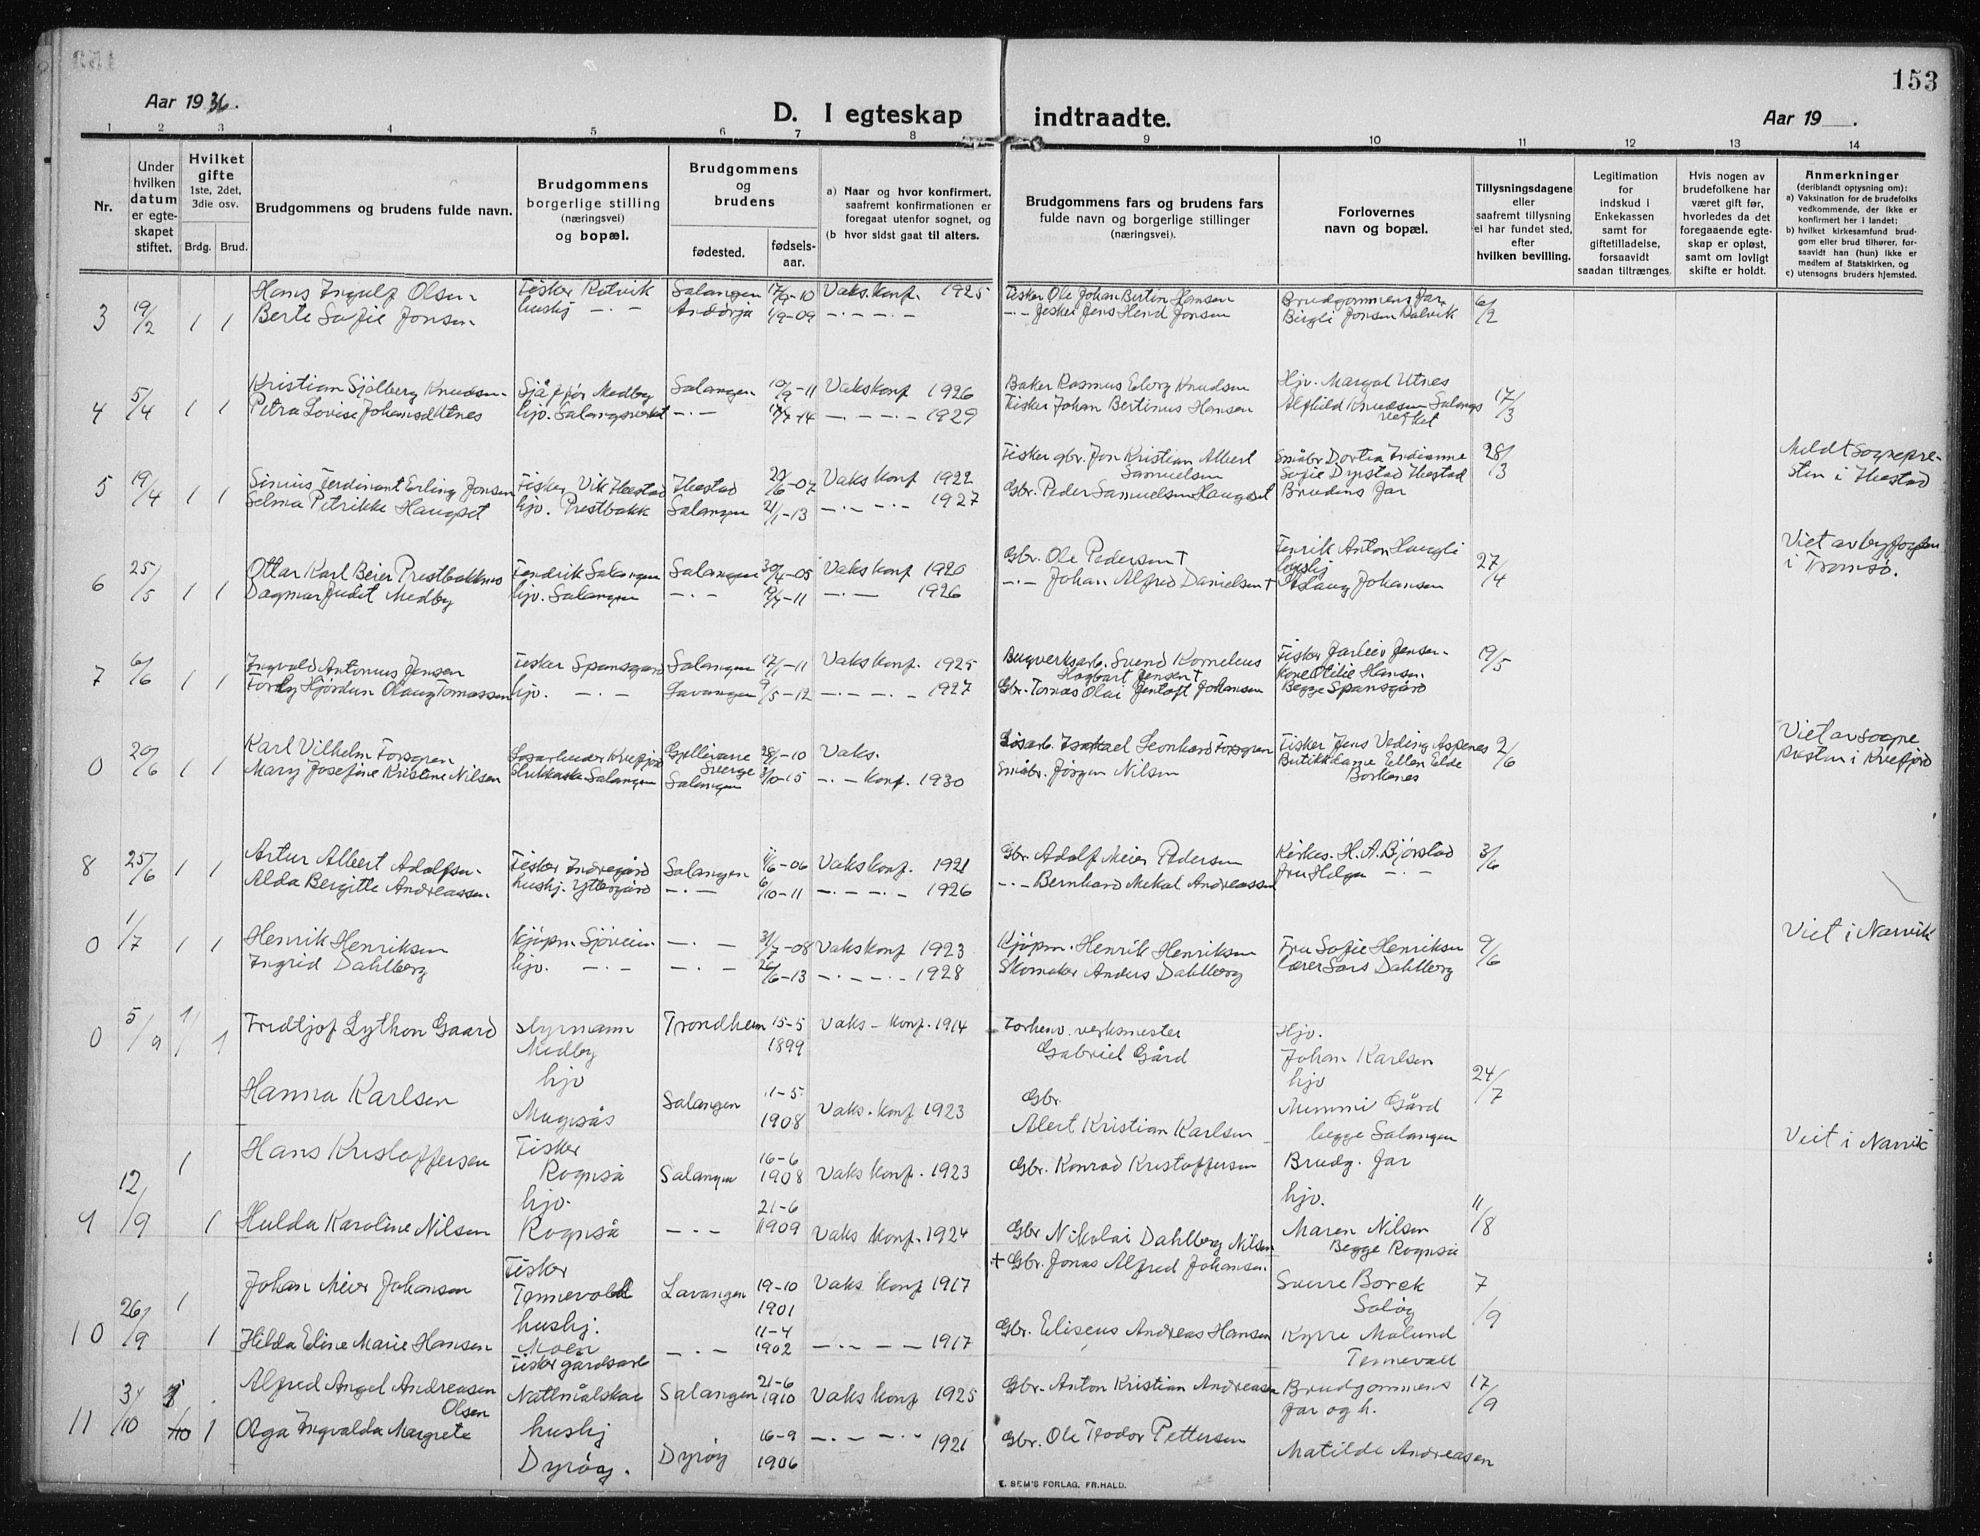 153
Aar 1936.
D. I egteskap indtraadte.
Aar 19 .
1 2 3 4 5 6 7 8 9 10 11 12 13 14
Nr.
Under hvilken datum er egteskapet stiftet.
Hvilket gifte 1ste, 2det, 3die osv.
Brdg. Brud.
Brudgommens og brudens fulde navn.
Brudgommens borgerlige stilling (næringsvei) og bopæl.
Brudgommens og brudens
fødested. fødselsaar.
a) Naar og hvor konfirmert, saafremt konfirmationen er foregaat utenfor sognet, og
(b hvor sidst gaat til alters.
Brudgommens fars og brudens fars fulde navn og borgerlige stillinger (næringsvei).
Forlovernes navn og bopæl.
Tillysningsdagene eller saafremt tillysning ei har fundet sted, efter hvilken bevilling.
Legitimation for indskud i Enkekassen samt for giftetilladelse, forsaavidt saadan tiltrænges.
Hvis nogen av brudefolkene har været gift før, hvorledes da det foregaaende egteskap er opløst, samt om lovligt skifte er holdt.
Anmerkninger (deriblandt oplysning om):
a) Vaksination for de brudefolks vedkommende, der ikke er konfirmert her i landet;
b) hvilket kirkesamfund brudgom eller brud tilhører, forsaavidt han (hun) ikke er medlem av Statskirken, og
c) utensogns bruders hjemsted.
3 19/2 1 1 Hans Ingulf Olsen Fisker Rotvik Salangen 17/9-10 Vaks. konf. 1925 Fisker Ole Johan Bertin Hansen Brudgommens far 6/2
Berte Sofie Jonsen hushj — " — Andørja 1/9-09 — " — " — Fisker Jens Hend Jonsen Birgli Jonsen
4 5/4 1 1 Kristian Sjølberg Knudsen Sjåfør Medby Salangen 10/9-11 Vaks konf 1926 Baker Rasmus Eberg Knudsen Hjv. Margot Utnes 17/3
Petra Lovise Johansd Utnes hjv. Salangsverket — " — -14 — " — " — 1929 Fisker Johan Bertinus Hansen Alfhild Knudsen Salangsverket
5 19/4 1 1 Ferdinant Erling Jonsen Fisker Vik Ibestad Ibestad 20/6-07 Vaks konf 1922 Fisker gbr. Jon Kristian Albert Samuelsen Sofie Dyrstad Ibestad 28/3 Meldt sognepresten i Ibestad
Selma Petrikke Haugset hjv. Prestbakk Salangen 21/1-13 — " — " — 1927 Gbr. Peder Samuelsen Haugset Brudens far
6 25/5 1 1 Ottar Karl Beier Prestbakmo Fendrik Salangen Salangen 30/4-05 Vaks konf 1920 Gbr. Ole Pedersen † Fenrik Anton Haugli 27/4 Viet av byfogden i Tromsø.
Dagmar Judit Medby hjv. Salangen — " — -11 — " — 1926 — " — Johan Alfred Danielsen † Aslaug Johansen
7 6/6 1 1 Ingvald Antonius Jensen Fisker Spansgard Salangen 17/1-11 Vaks konf. 1925 Svend Kornelius Hagbart Jensen † Fisker Jarleiv Jensen 19/5
Hjørdun Olaug Tomassen hjv. — " — Lavangen 9/5-12 — " — " — 1927 Gbr. Tomas Olai Jentoft Johansen Kone Otilie Hansen Begge Spansgård
0 20/6 1 1 Karl Vilhelm Forsgren Kvefjord Gellivarre Sverge 28/1-10 Vaks. Leonhard Forsgren Fisker Jens Veding Aspenes 2/6 Viet av sognepresten i Kvefjord
Mary Josefine Kristine Nilsen Salangen Salangen 3/10-15 — " — konf. 1930 Småbr. Jørgen Nilsen Butikkdame Ellen Elde Borkenes
8 25/6 1 1 Artur Albert Adolfsen Fisker Indregård Salangen /6-06 Vaks konf. 1921 Gbr. Adolf Meier Pedersen Kirkes. H. A. Bjørstad 3/6
Alda Bergitte Andreassen hushj. Yttergård — " — 6/10-11 — " — " — 1926 — " — Bernhard Mekal Andreassen Fru Helga — " —
0 1/7 1 1 Henrik Henriksen Kjøpm. Sjøvein — " — 31/7-08 Vaks konf 1923 Kjøpm. Henrik Henriksen Fru Sofie Henriksen 9/6 Viet i Narvik
Ingrid Dahlberg hjv. — " — — " — 26/6-13 — " — " — 1928 Skomaker Anders Dahlberg Lærer Lars Dahlberg
0 5/9 1 1 Fridtjof Lython Gaard styrmann Medby Trondheim 15-5 1899 Vaks - konf. 1914 Forhenv. verksmester Gabriel Gård Hjv. Johan Karlsen 24/7
Hanna Karlsen hjv Salangen 1-5 1908 Vaks. konf 1923 Gbr. Albert Kristian Karlsen hjv Mimmi Gård begge Salangen
9 12/9 1 1 Hans Kristoffersen Fisker Rognså Salangen 16-6 1908 Vaks konf. 1923 Gbr. Konrad Kristoffersen Brudg. far 11/8 Veit i Narvik
Hulda Karoline Nilsen hjv. Rognså — " — 21-6 1909 Vaks konf. 1924 Gbr Nikolai Dahlberg Nilsen hjv. Maren Nilsen Begge Rognså
10 26/9 1 1 Johan Meier Johansen Fisker Tennevoll Lavangen 19-10 1901 Vaks konf 1917 + Gbr. Jonas Alfred Johansen Sverre Borck Soløy 7/9
Hilda Eline Marie Hansen hushj. Moen — " — 11-4 1902 — " — " — 1917 Gbr. Eliseus Andreas Hansen Kyrre Mølund Tennevoll
11 3/10 1 Alfred Angel Andreasen Fisker gårdsarb Nattmålskar Salangen 21-6 1910 Vaks konf 1925 Gbr. Anton Kristian Andreasen Brudgommens far og h. 17/9
Aga Ingvalda Margrete Olsen hushj Dyrøy. Dyrøy 16-9 1906 — " — " — 1921 Gbr. Ole Teodor Pettersen Matilde Andreasen
E. SEM'S FORLAG, FR.HALD.